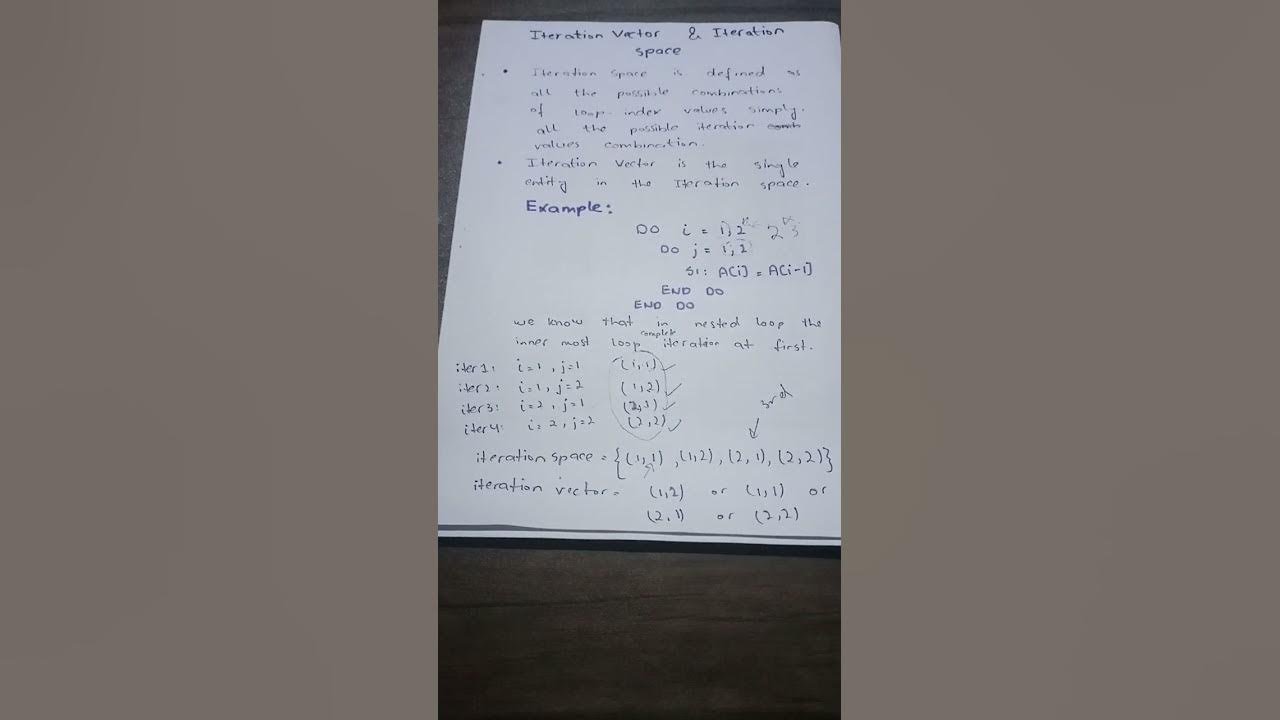 Iteration Vector & Iteration
space
• Iteration space is defined as
all the possible combinations
of loop index values simply.
all the possible iteration
values combination.
• Iteration Vector is the single
entity in the Iteration space.
Example:
DO i = 1,2 2 3
DO j = 1,2
S1: A[i] = A[i-1]
END DO
END DO
we know that in nested loop the
complete
inner most loop iteration at first.
iter1: i=1, j=1 (1,1)
iter2: i=1, j=2 (1,2)
iter3: i=2, j=1 (2,1)
iter4: i=2, j=2 (2,2)
3rd
iteration space = {(1,1), (1,2), (2,1), (2,2)}
iteration vector = (1,2) or (1,1) or
(2,1) or (2,2)